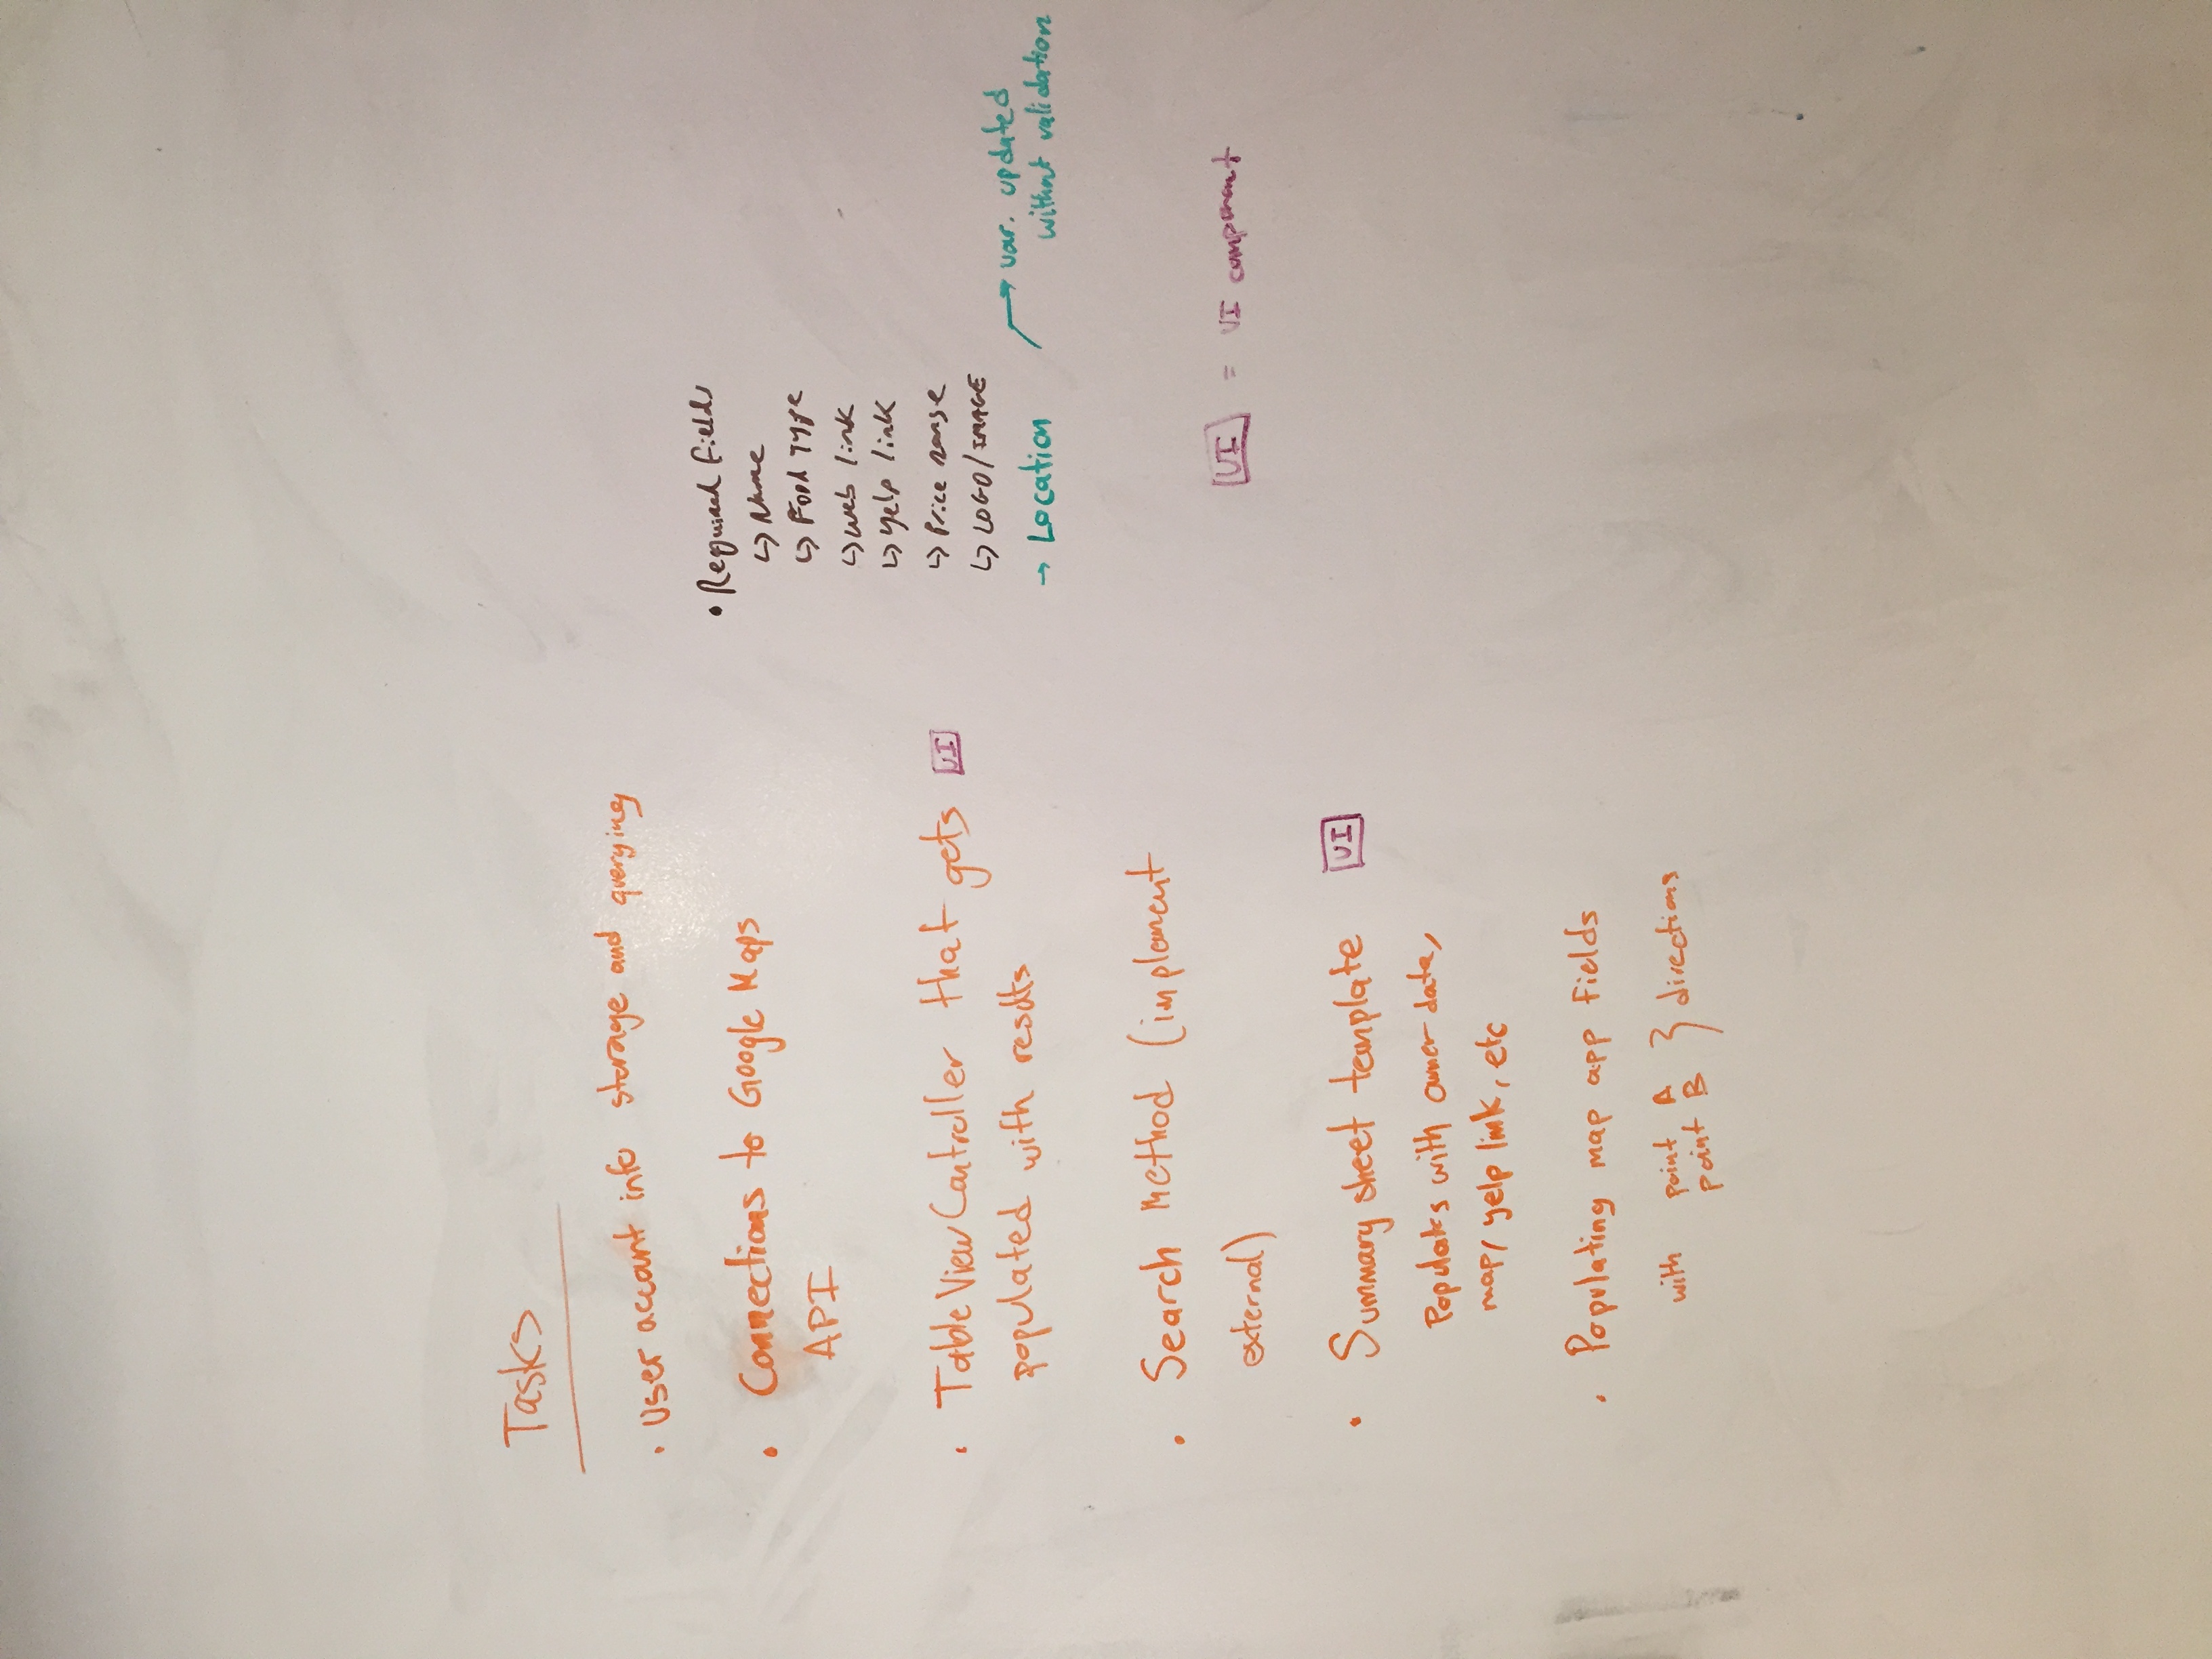 Tasks
• User account info storage and querying
• Connections to Google Maps
API
• TableViewController that gets UI
populated with results
• Search Method (implement
external)
• Summary sheet template UI
Populates with owner data,
map, yelp link, etc
• Populating map app fields
with point A } directions
point B
• Required fields
↳ Name
↳ Food Type
↳ web link
↳ yelp link
↳ Price range
↳ LOGO/IMAGE
→ Location
→ var. updated
without validation
UI = UI component